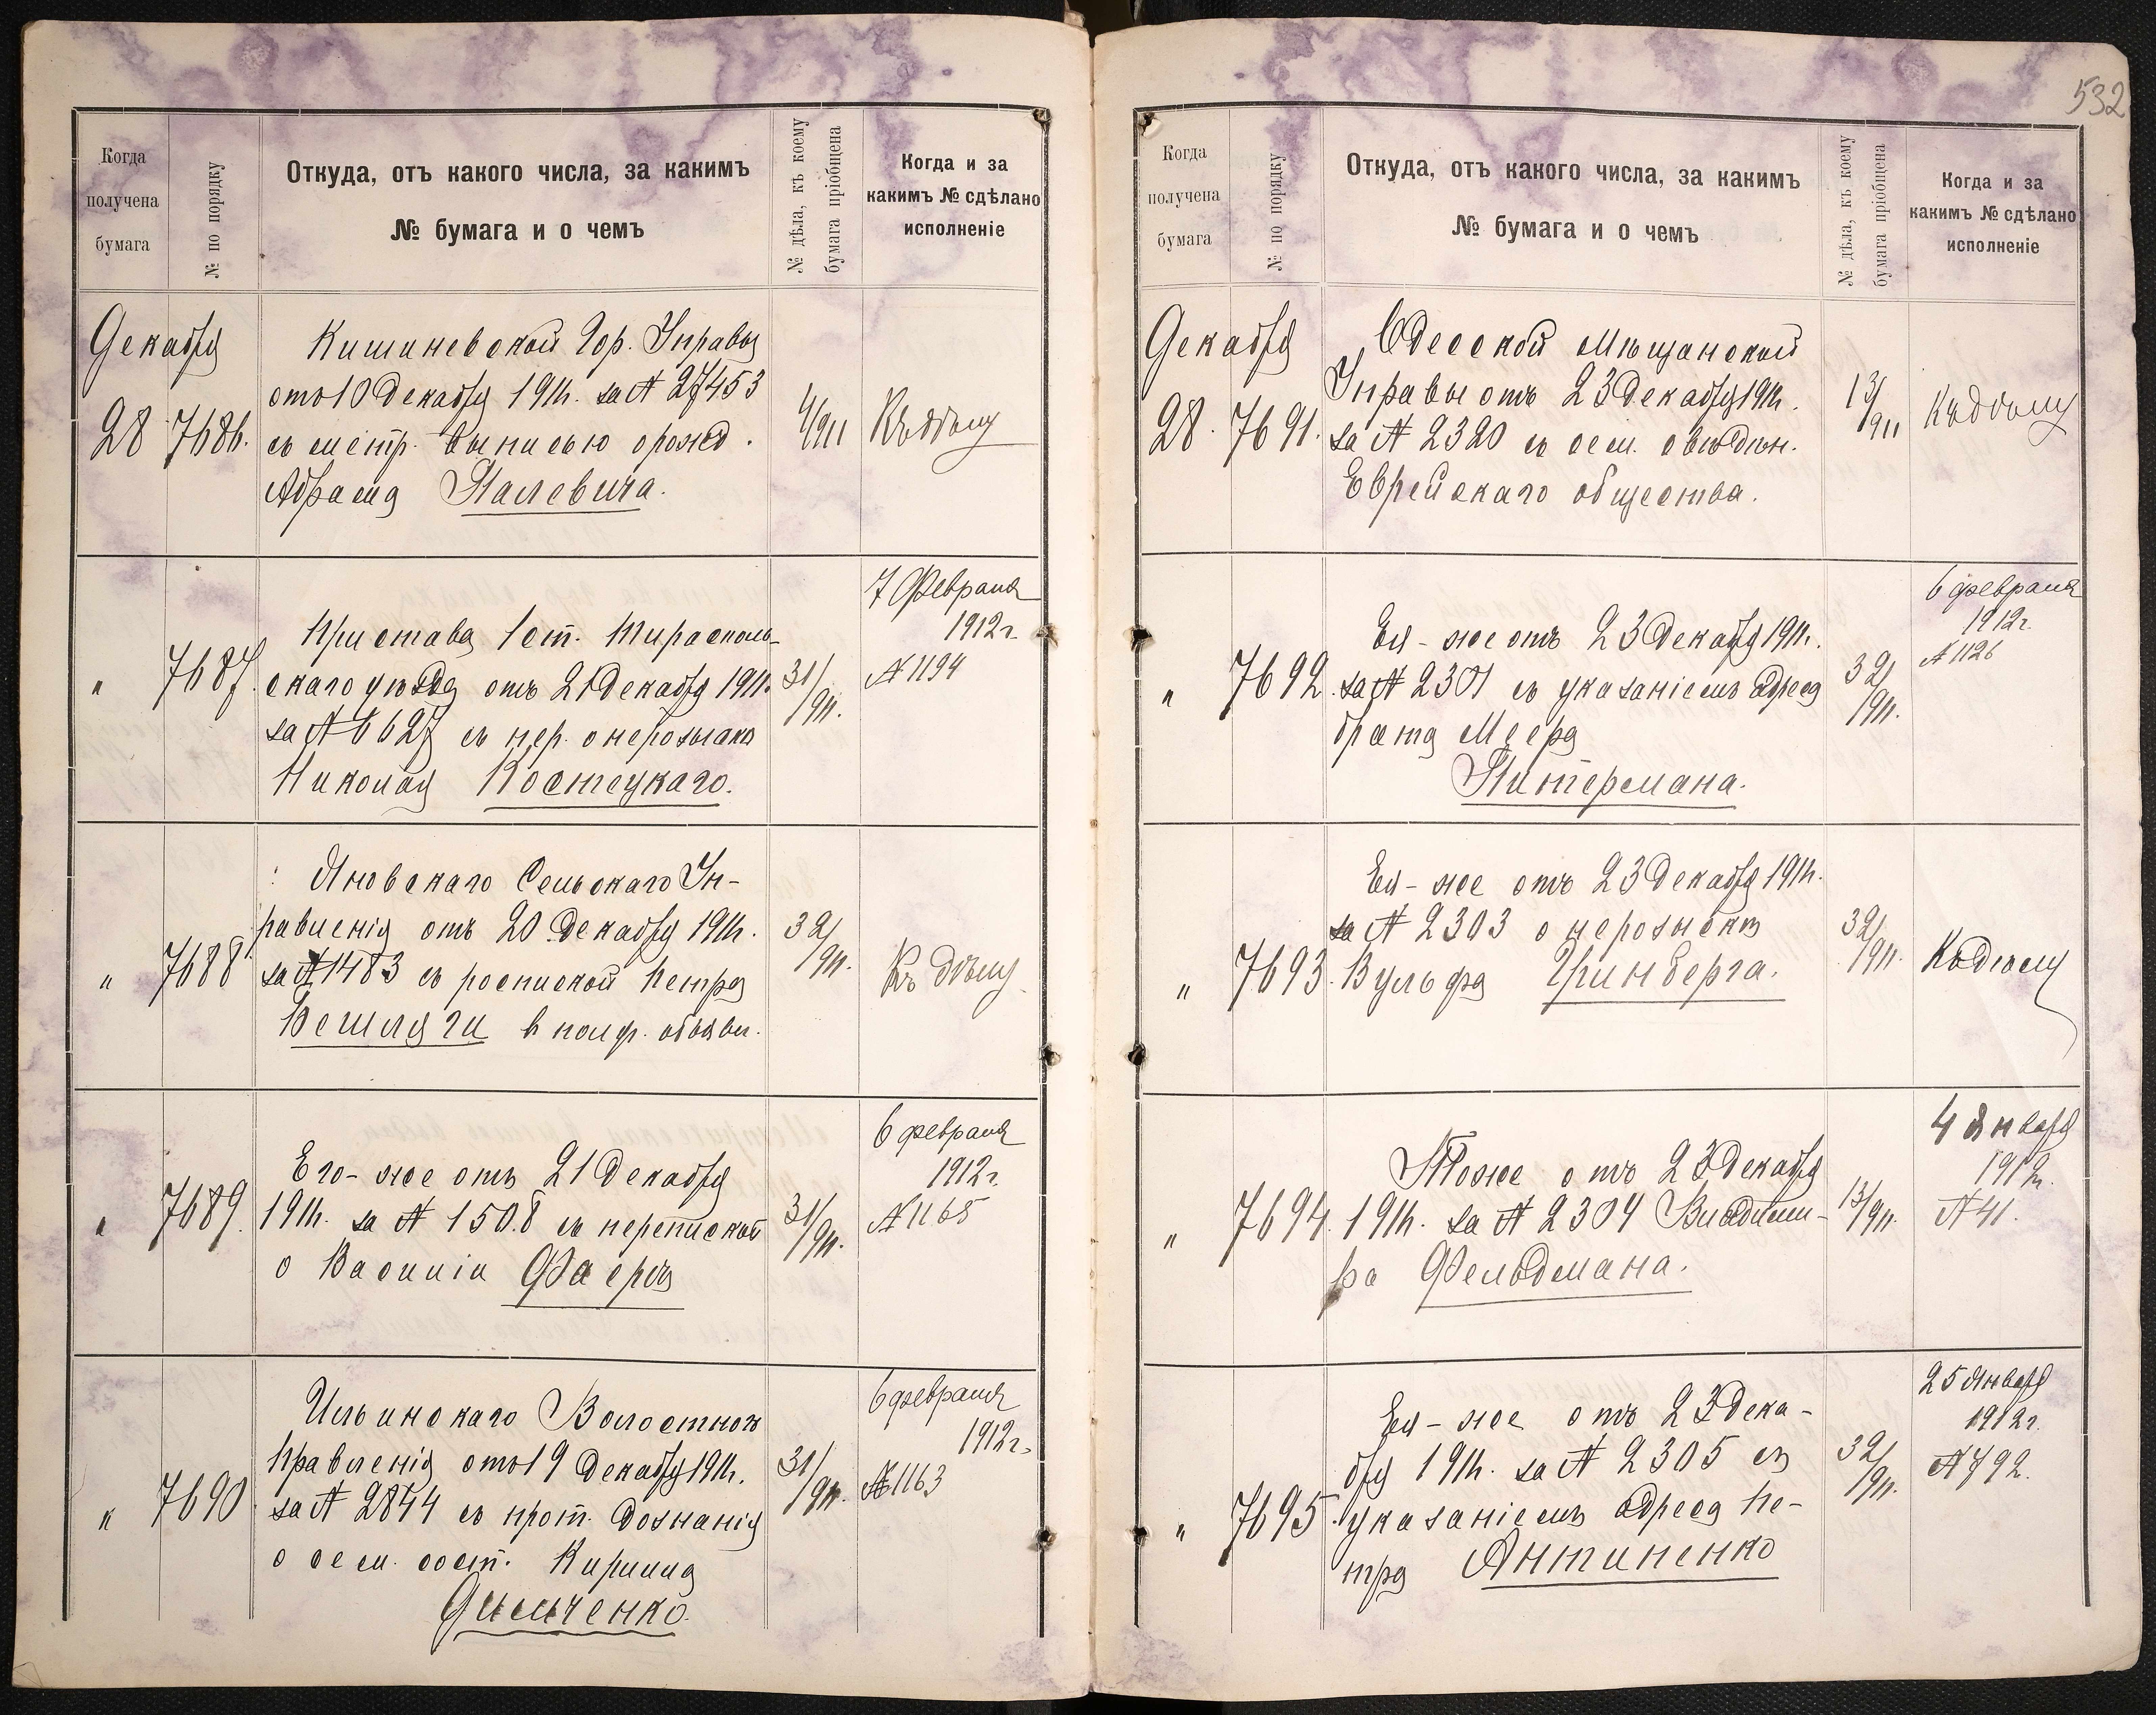 532
Когда
получена
бумага
№ по порядку
Откуда, отъ какого числа, за какимъ
№ бумага и о чемъ
№ дѣла, къ коему
бумага пріобщена
Когда и за
какимъ № сдѣлано
исполненіе
Декабря
28
7686.
Кишиневской Гор. Управы
отъ 10 Декабря 1911г. за № 27453
съ метр. выписью о рожд.
Абрама Палевича.
4/911
Къ дѣлу
"
7687.
Пристава 1 ст. Тирасполь-
скаго уѣзда отъ 21 Декабря 1911г.
за № 6627 съ пер. о нерозыскѣ
Николая Костецкаго.
31/911.
7 Февраля
1912г.
№ 1194
"
7688
Яновскаго Сельскаго Уп-
равленія отъ 20 Декабря 1911г.
за № 1483 съ роспиской Петра
Вешляги в получ. объявл.
32/911.
Къ дѣлу
"
7689.
Его-же отъ 21 Декабря
1911г. за № 1508 съ перепиской
о Василіи Фаеръ
31/911.
6 февраля
1912г.
№ 1165
"
7690
Ильинскаго Волостного
Правленія отъ 19 Декабря 1911г.
за № 2844 съ прот. дознанія
о сем. сост. Кирилла
Дымченко.
31/911.
6 февраля
1912г.
№ 1163
Когда
получена
бумага
№ по порядку
Откуда, отъ какого числа, за какимъ
№ бумага и о чемъ
№ дѣла, къ коему
бумага пріобщена
Когда и за
какимъ № сдѣлано
исполненіе
Декабря
28.
7691.
Одесской Мѣщанской
Управы отъ 23 Декабря 1911г.
за № 2320 съ сем. свѣдѣн.
Еврейскаго общества.
13/911
Къ дѣлу
"
7692.
Ея-же отъ 23 Декабря 1911г.
за № 2301 съ указаніемъ адреса
брата Меера
Питермана.
32/911.
6 февраля
1912г.
№ 1126
"
7693.
Ея-же отъ 23 Декабря 1911г.
за № 2303 о нерозыскѣ
Вульфа Гринберга.
32/911.
Къ дѣлу
"
7694.
Тоже отъ 23 Декабря
1911г. за № 2304 Владими-
ра Фельдмана.
13/911.
4 Января
1912г.
№ 41.
"
7695.
Ея-же отъ 23 Дека-
бря 1911г. за № 2305 съ
указаніемъ адреса Пе-
тра Антипенко
32/911.
25 Января
1912г.
№ 792.